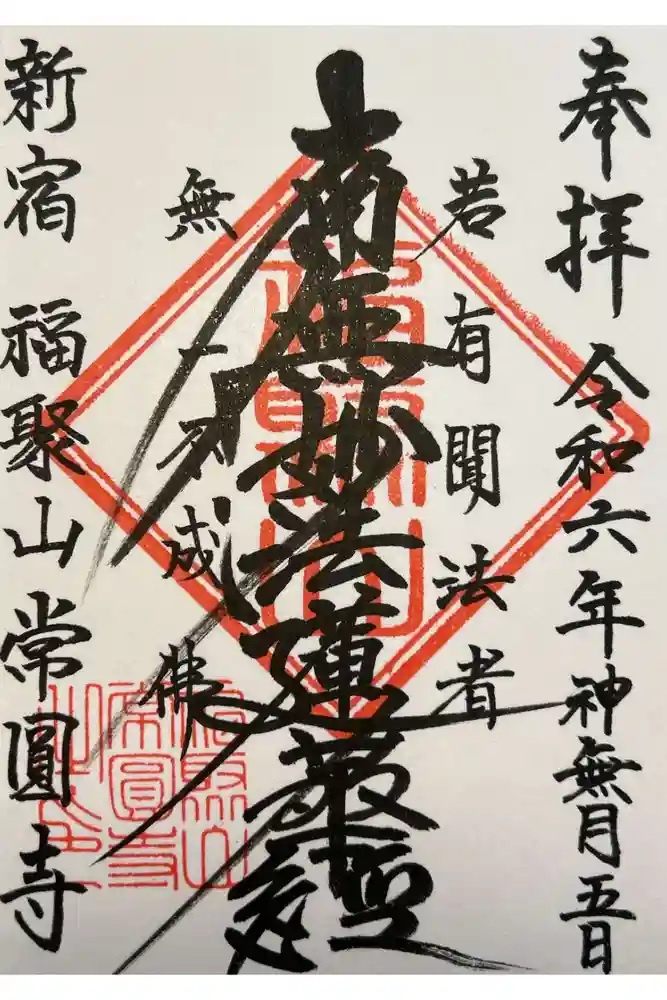 奉拝 令和六年神無月五日
若有聞法者
南無妙法蓮華經
無一不成佛
新宿 福聚山 常圓寺
福聚山
常圓寺